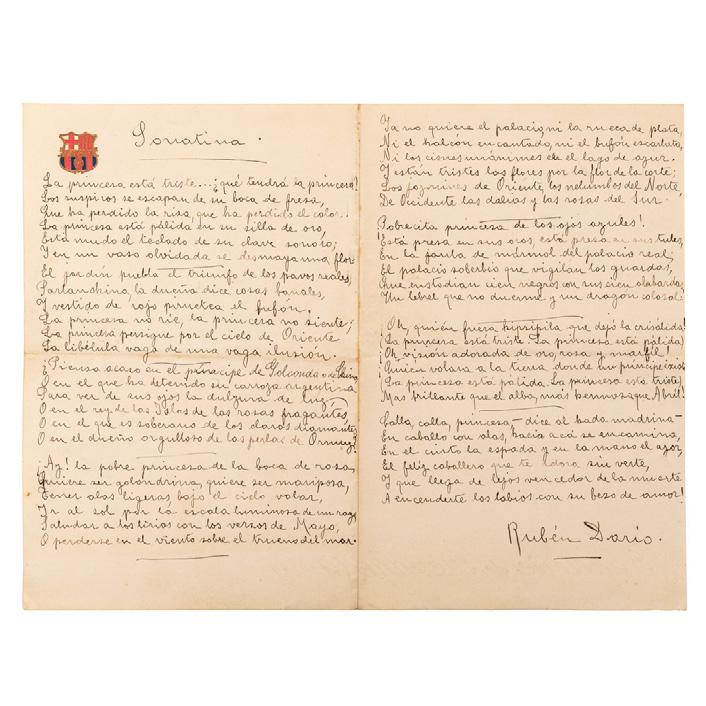 Sonatina.
La princesa está triste... ¿qué tendrá la princesa?
Los suspiros se escapan de su boca de fresa,
Que ha perdido la risa, que ha perdido el color.
La princesa está pálida en su silla de oro,
Está mudo el teclado de su clave sonoro;
Y en un vaso olvidada se desmaya una flor.
El jardín puebla el triunfo de los pavos reales;
Parlanchina la dueña dice cosas banales,
Y vestido de rojo piruetea el bufón.
La princesa no ríe, la princesa no siente;
La princesa persigue por el cielo de Oriente
La libélula vaga de una vaga ilusión.
¿Piensa acaso en el príncipe de Golconda o de China,
O en el que ha detenido su carroza argentina
Para ver de sus ojos la dulzura de luz,
O en el rey de las Islas de las rosas fragantes,
O en el que es soberano de los claros diamantes,
O en el dueño orgulloso de las perlas de Ormuz?
¡Ay! la pobre princesa de la boca de rosa,
Quiere ser golondrina, quiere ser mariposa,
Tener alas ligeras bajo el cielo volar,
Ir al sol por la escala luminosa de un rayo,
Saludar a los lirios con los versos de Mayo,
O perderse en el viento sobre el trueno del mar.
Ya no quiere el palacio, ni la rueca de plata,
Ni el halcón encantado, ni el bufón escarlata,
Ni los cisnes unánimes en el lago de azur.
Y están tristes las flores por la flor de la corte;
Los jazmines de Oriente, los nelumbos del Norte,
De Occidente las dalias y las rosas del Sur.
¡Pobrecita princesa de los ojos azules!
Está presa en sus oros, está presa en sus tules,
En la jaula de mármol del palacio real;
El palacio soberbio que vigilan los guardas,
Que custodian cien negros con sus cien alabardas,
Un lebrel que no duerme y un dragón colosal.
¡Oh, quién fuera hipsipila que dejó la crisálida!
(La princesa está triste. La princesa está pálida)
¡Oh visión adorada de oro, rosa y marfil!
¡Quién volara a la tierra donde un príncipe existe
(La princesa está pálida. La princesa está triste)
Más brillante que el alba, más hermoso que Abril!
Calla, calla, princesa,—dice el hada madrina—
En caballo con alas, hacia acá se encamina,
En el cinto la espada y en la mano el azor,
El feliz caballero que te adora sin verte,
Y que llega de lejos vencedor de la muerte
A encenderte los labios con su beso de amor!
Rubén Darío.